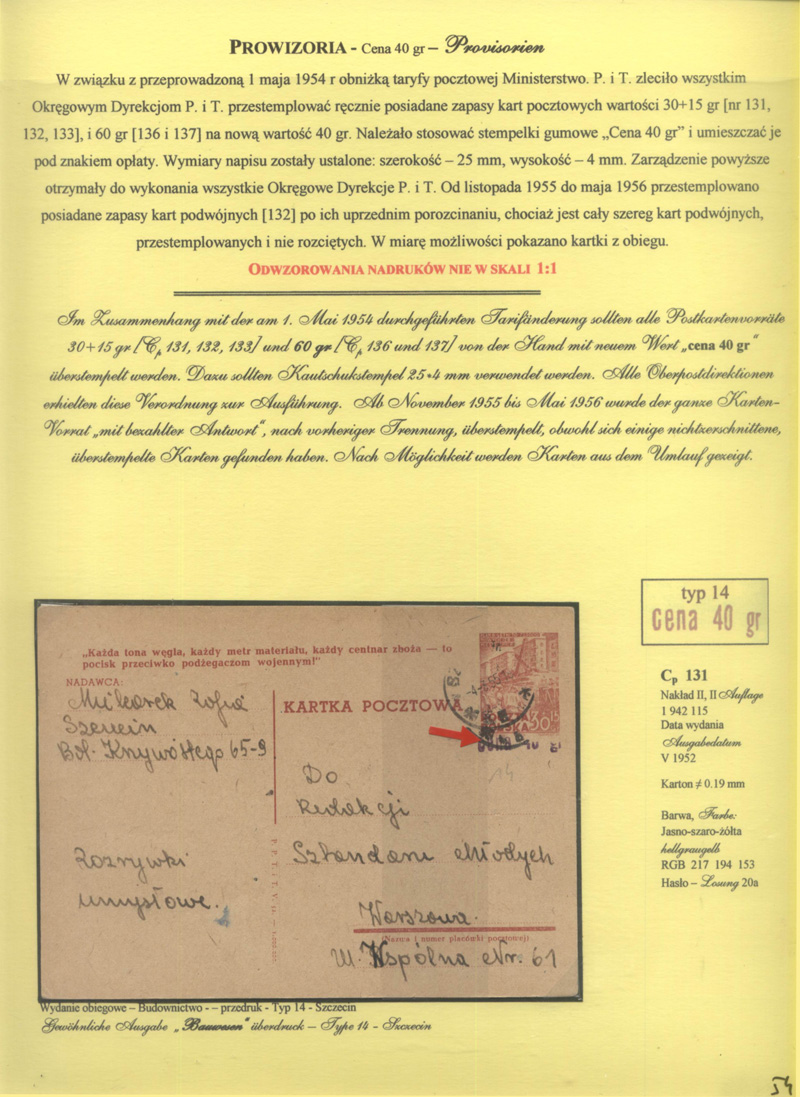 PROWIZORIA - Cena 40 gr – Provisorien
W związku z przeprowadzoną 1 maja 1954 r obniżką taryfy pocztowej Ministerstwo. P. i T. zleciło wszystkim
Okręgowym Dyrekcjom P. i T. przestemplować ręcznie posiadane zapasy kart pocztowych wartości 30+15 gr [nr 131,
132, 133], i 60 gr [136 i 137] na nową wartość 40 gr. Należało stosować stempelki gumowe „Cena 40 gr” i umieszczać je
pod znakiem opłaty. Wymiary napisu zostały ustalone: szerokość – 25 mm, wysokość – 4 mm. Zarządzenie powyższe
otrzymały do wykonania wszystkie Okręgowe Dyrekcje P. i T. Od listopada 1955 do maja 1956 przestemplowano
posiadane zapasy kart podwójnych [132] po ich uprzednim porozcinaniu, chociaż jest cały szereg kart podwójnych,
przestemplowanych i nie rozciętych. W miarę możliwości pokazano kartki z obiegu.
ODWZOROWANIA NADRUKÓW NIE W SKALI 1:1
Im Zusammenhang mit der am 1. Mai 1954 durchgeführten Tarifänderung sollten alle Postkartenvorräte
30+15 gr [Cp 131, 132, 133] und 60 gr [Cp 136 und 137] von der Hand mit neuem Wert „cena 40 gr“
überstempelt werden. Dazu sollten Kautschukstempel 25*4 mm verwendet werden. Alle Oberpostdirektionen
erhielten diese Verordnung zur Ausführung. Ab November 1955 bis Mai 1956 wurde der ganze Karten-
Vorrat „mit bezahlter Antwort“, nach vorheriger Trennung, überstempelt, obwohl sich einige nichtzerschnittene,
überstempelte Karten gefunden haben. Nach Möglichkeit werden Karten aus dem Umlauf gezeigt.
typ 14
cena 40 gr
„Każda tona węgla, każdy metr materiału, każdy centnar zboża — to
pocisk przeciwko podżegaczom wojennym!”
NADAWCA:
Zofia
Szczecin
65-9
KARTKA POCZTOWA
30
14
Do
Redakcji
Sztandaru Młodych
Rozrywki
umysłowe.
Warszawa.
(Nazwa i numer placówki pocztowej)
Ul. Wspólna Nr. 61
Cp 131
Nakład II, II Auflage
1 942 115
Data wydania
Ausgabedatum
V 1952
Karton ≠ 0.19 mm
Barwa, Farbe:
Jasno-szaro-żółta
hellgraugelb
RGB 217 194 153
Hasło – Losung 20a
Wydanie obiegowe – Budownictwo - – przedruk - Typ 14 - Szczecin
Gewöhnliche Ausgabe „Bauwesen“ überdruck – Type 14 - Szczecin
54